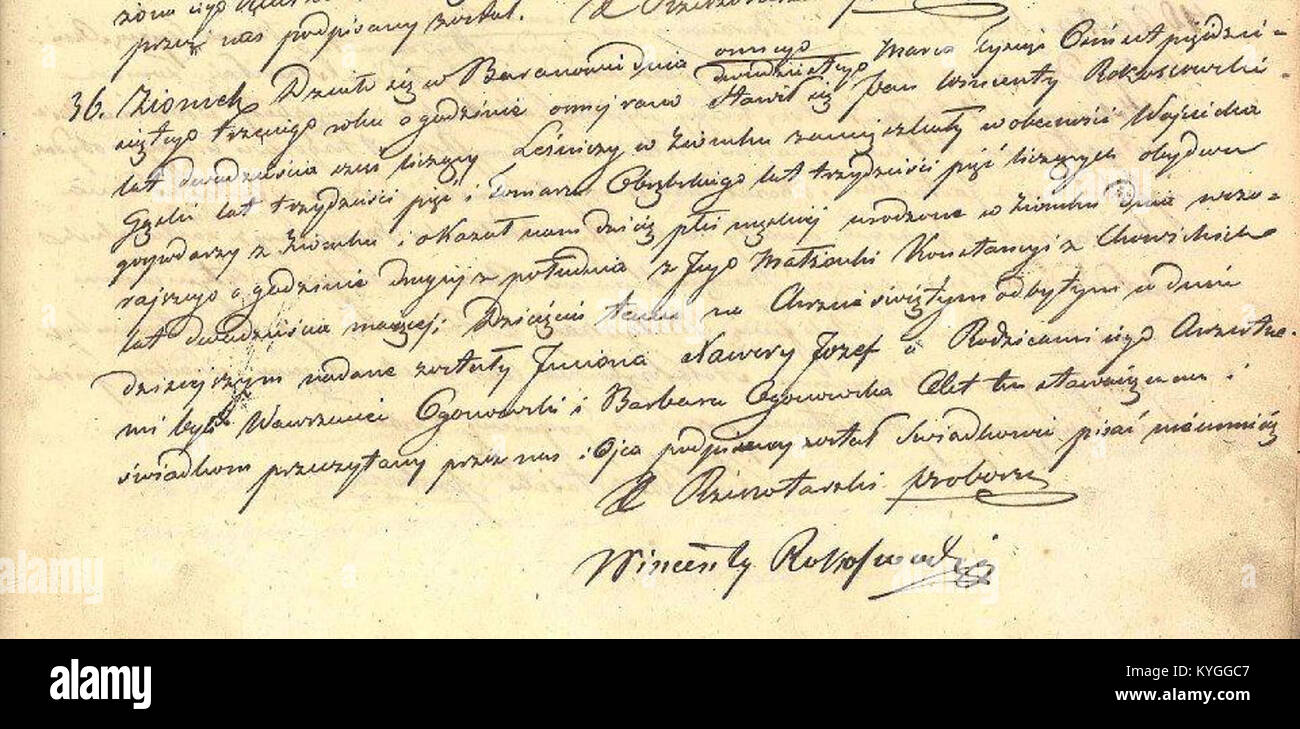 przez nas podpisany został.
ósmego
36. Ziomek Działo się w Baranowie dnia dwudziestego Marca tysiąc Ośmset pięćdzie-
siątego trzeciego roku o godzinie ósmy rano Stawił się Pan Wincenty Rokossowski
lat dwadzieścia sześć liczący Leśniczy w Ziomku zamieszkały w obecności Wojciecha
lat trzydzieści pięć i Tomasza lat trzydzieści pięć liczących obydwu
gospodarzy z Ziomku i okazał nam dziecię płci męzkiej urodzone w Ziomku dnia wczo-
rajszego o godzinie drugiej z południa z Jego Małżonki Konstancyi z
lat dwadzieścia mającej. Dziecięciu temu na Chrzcie świętym odbytym w dniu
dzisiejszym nadane zostały Imiona Xawery Jozef a Rodzicami jego Chrzestne-
mi byli Wawrzeniec Ogonowski i Barbara Ogonowska Akt ten stawaiącemu i
świadkom przeczytany przez nas i Ojca podpisany został Świadkowie pisać nieumieią
X Rzewotarski proboszcz
Wincenty Rokossowski
alamy
Image ID: KYGGC7
www.alamy.com